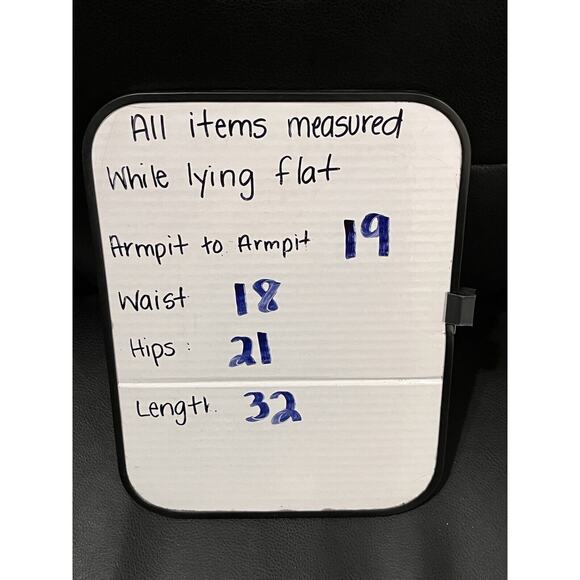 All items measured
While lying flat
Armpit to Armpit 19
Waist 18
Hips : 21
Length. 32